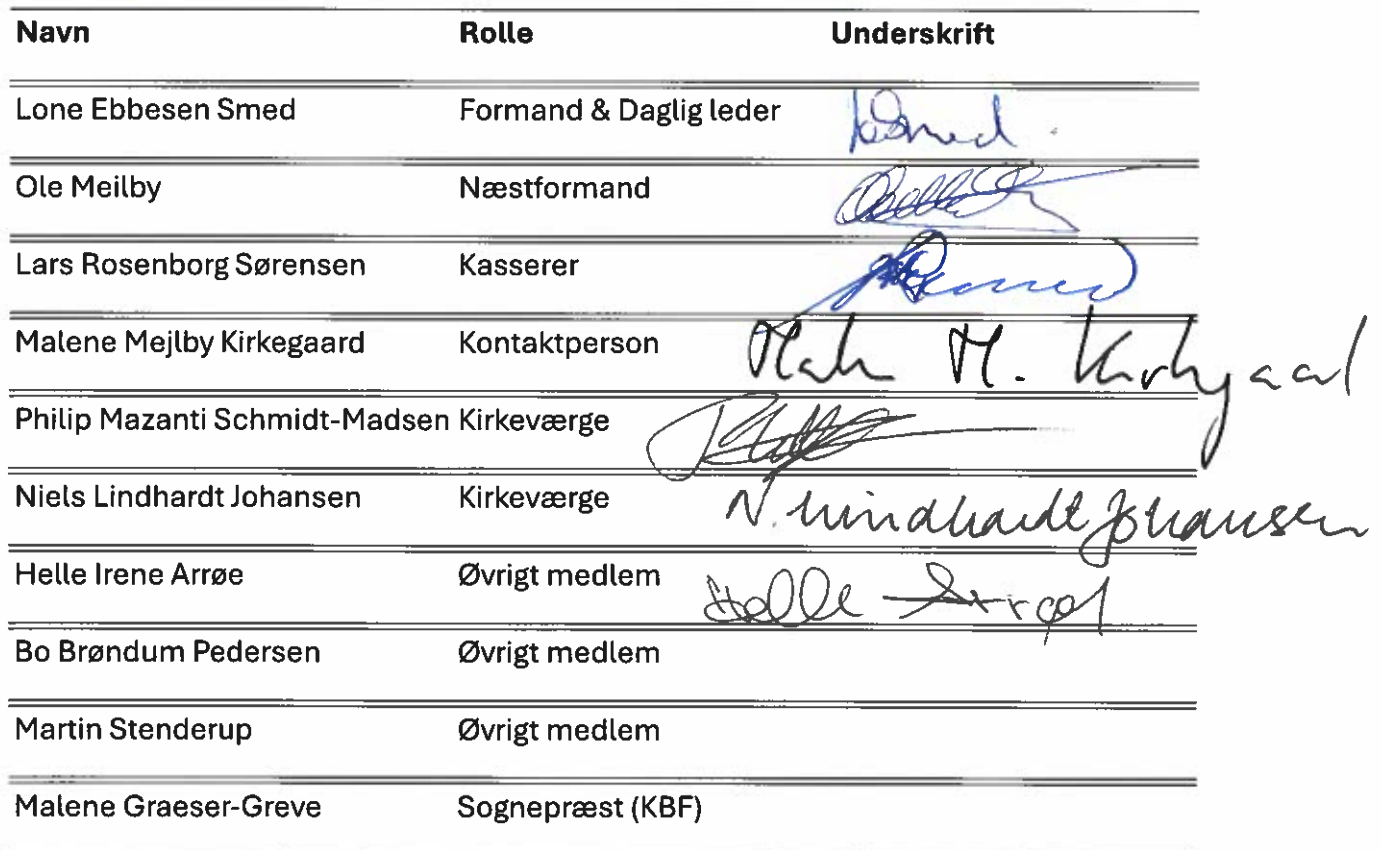 Navn Rolle Underskrift
Lone Ebbesen Smed Formand & Daglig leder
Ole Meilby Næstformand
Lars Rosenborg Sørensen Kasserer
Malene Mejlby Kirkegaard Kontaktperson M.
Philip Mazanti Schmidt-Madsen Kirkeværge
Niels Lindhardt Johansen Kirkeværge N. Lindhardt Johansen
Helle Irene Arrøe Øvrigt medlem Helle Arrøe
Bo Brøndum Pedersen Øvrigt medlem
Martin Stenderup Øvrigt medlem
Malene Graeser-Greve Sognepræst (KBF)